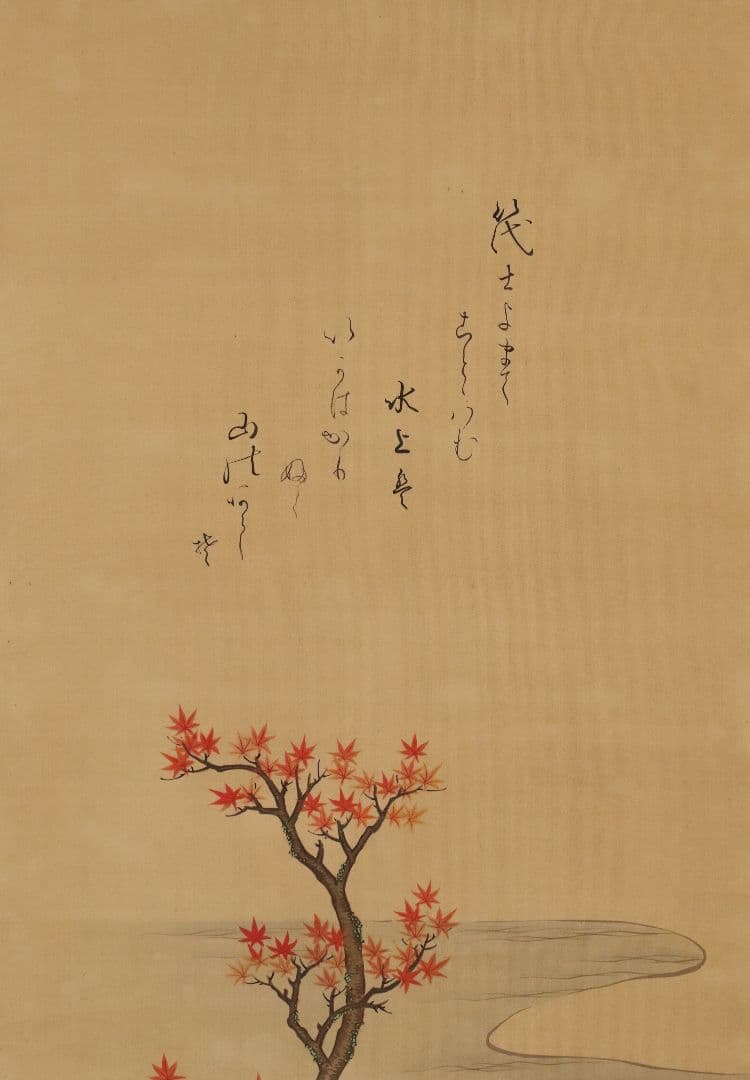 筏士よまて
ことゝハむ
水上は
いかはかり
ふく
山のあらし
そ